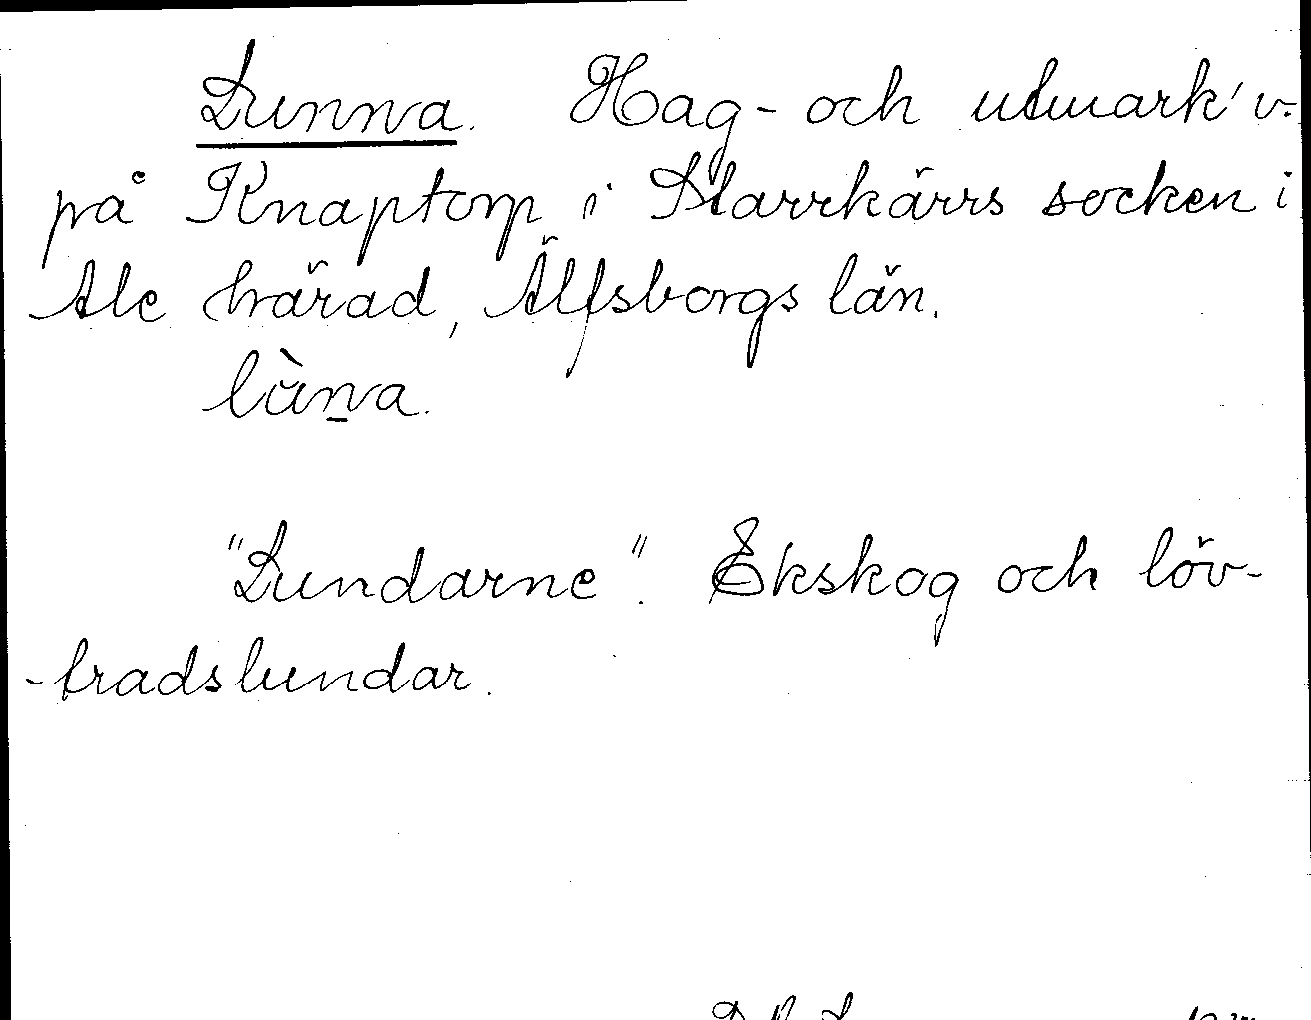 Lunna. Hag- och utmark v.
på Knaptorp i Starrkärrs socken i
Ale härad, Älfsborgs län.
lùn̲a.
"Lundarne". Ekskog och löv-
-tradslundar.